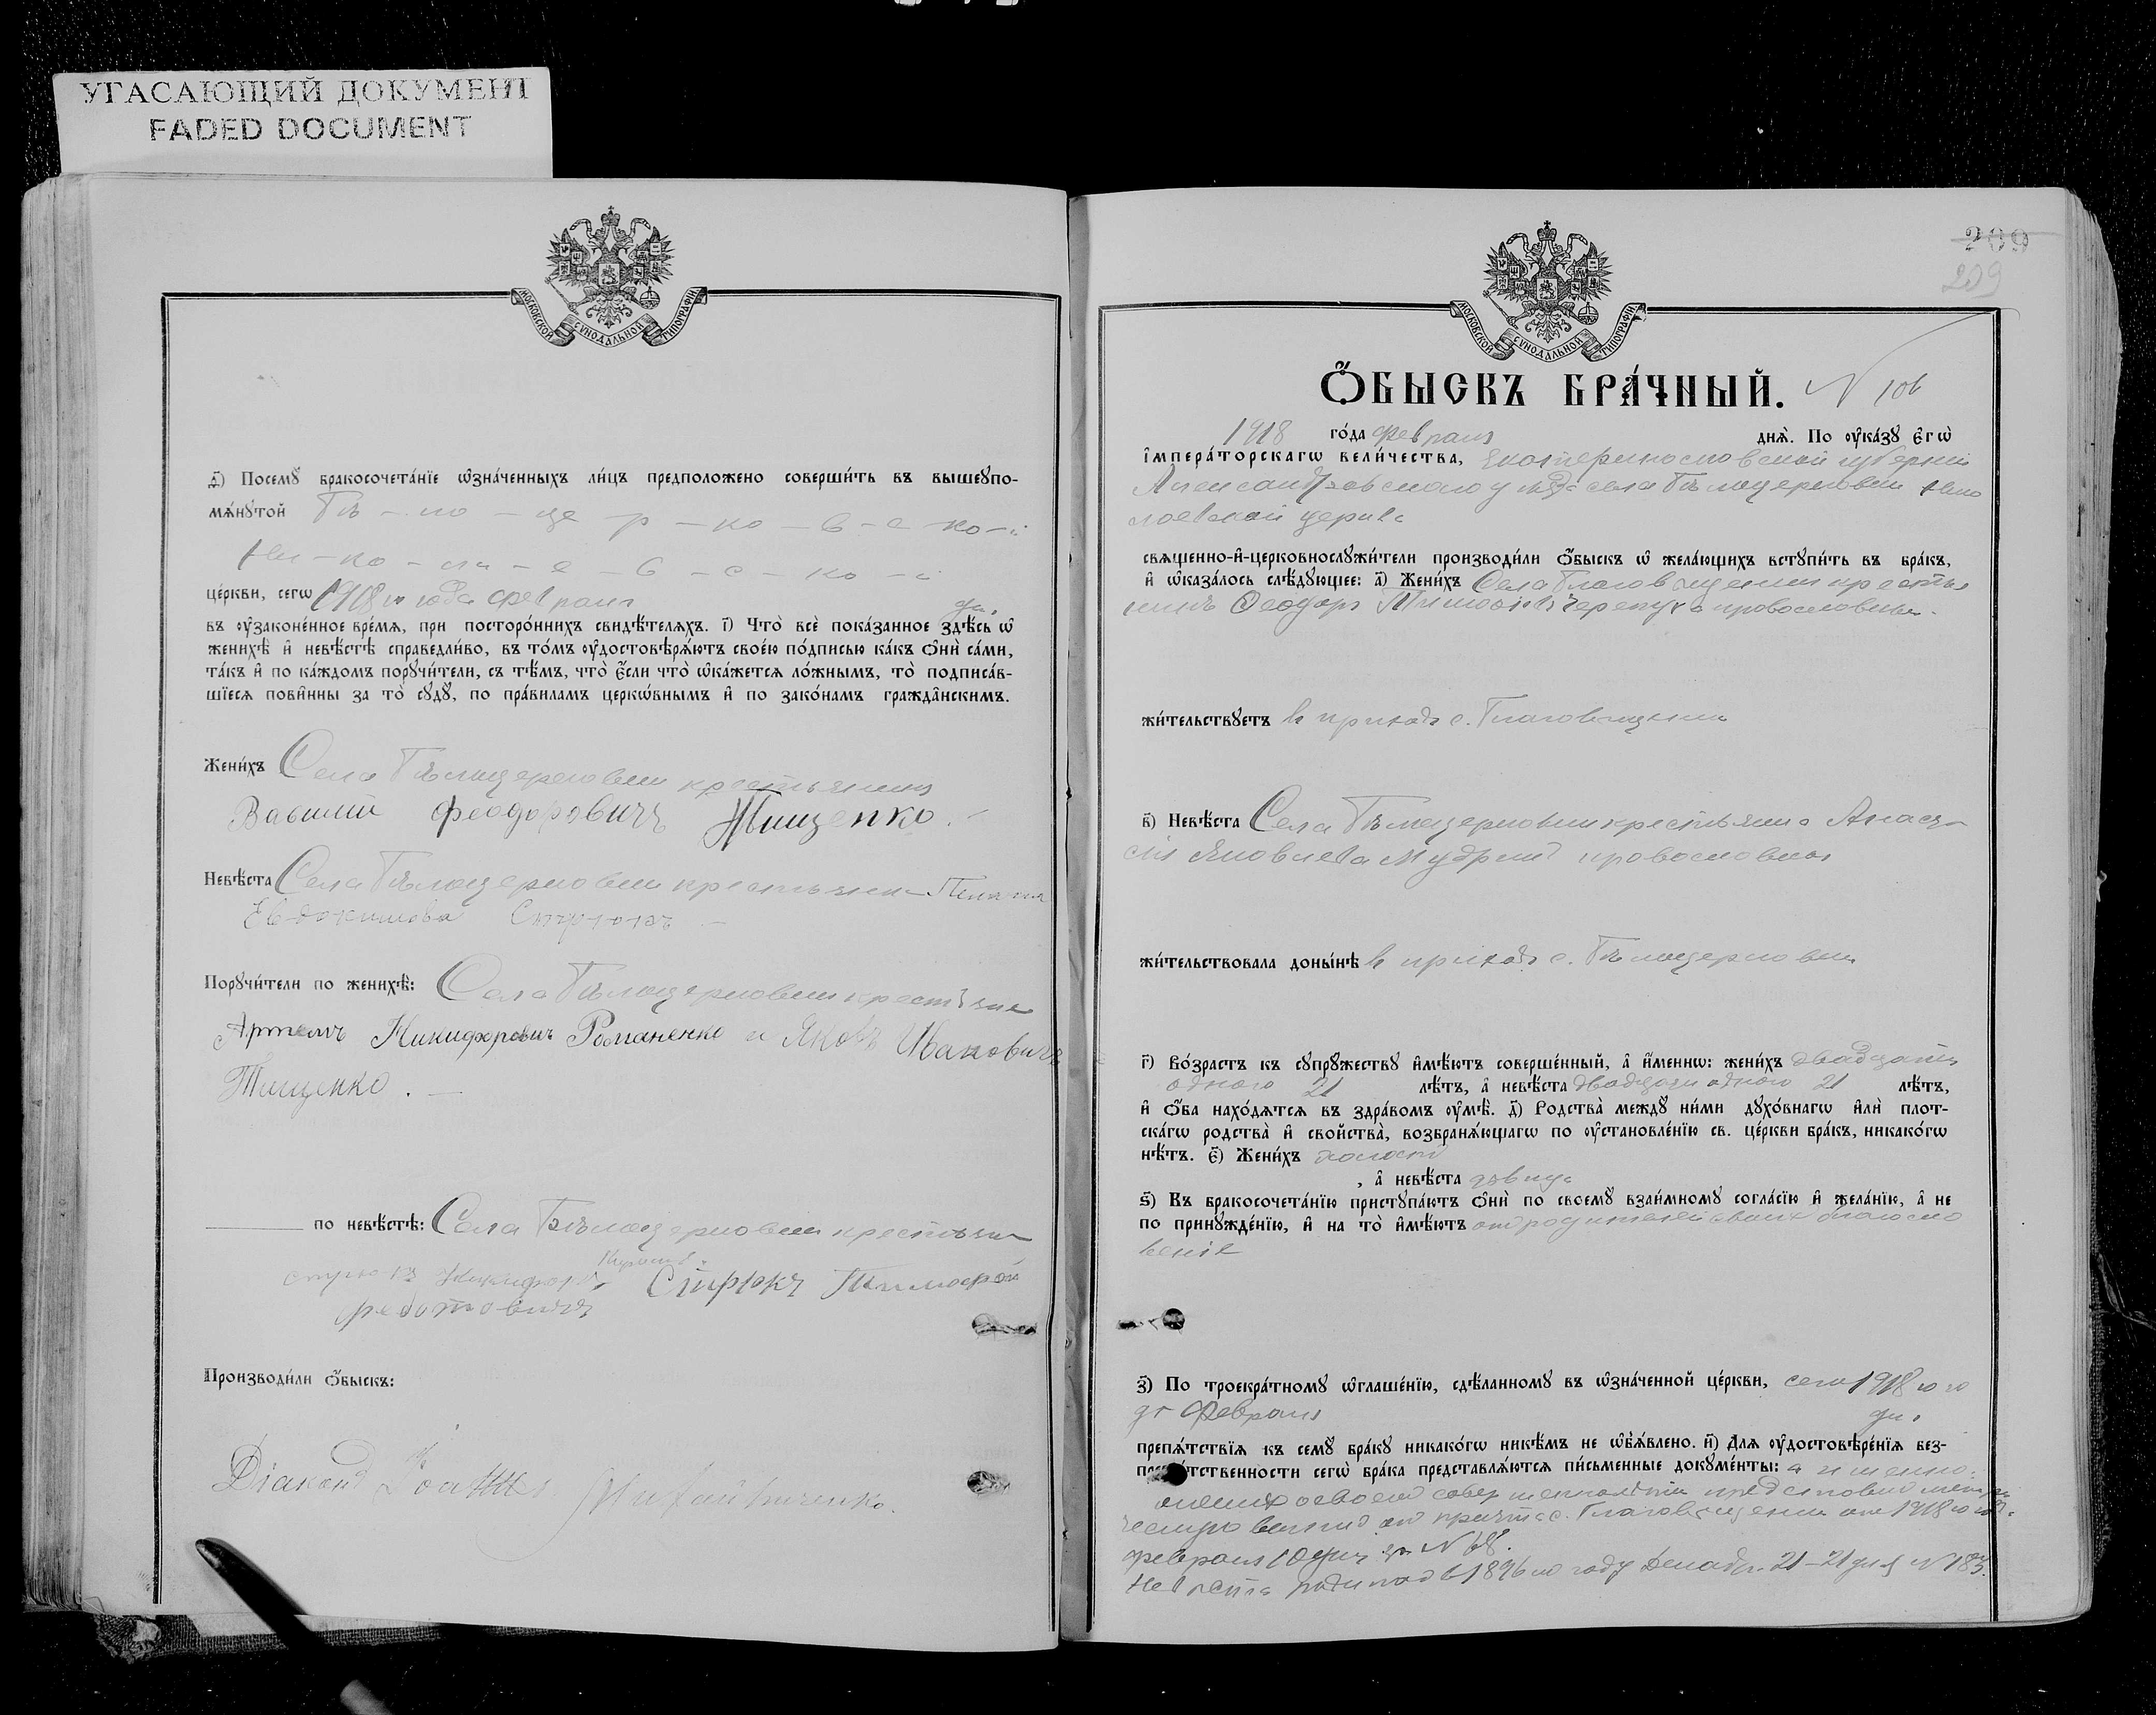 УГАСАЮЩИЙ ДОКУМЕНТ
FADED DOCUMENT
МОСКОВСКОЙ СѴНОДАЛЬНОЙ ТИПОГРАФІИ
д҃) Посемꙋ бракосочета́нїе ѡ҆зна́ченныхъ ли́цъ предположено соверши́ть въ вышеꙋпо-
мѧ́нꙋтой Бѣ - ло - це - р - ко - в - с - ко - й
Ни - ко - ла - е - в - с - ко - й
це́ркви, сегѡ 1918 го года февраля дня
въ ᲂу҆зако́ненное вре́мѧ, при посторо́ннихъ свидѣ́телѧхъ. і҃) Что̀ всѐ пока́занное здѣ́сь ѡ҆
женихѣ̀ и҆ невѣ́стѣ справедли́во, въ то́мъ ᲂу҆достовѣрѧ́ютъ свое́ю по́дписью ка́къ ѻ҆нѝ са́ми,
та́къ и҆ по ка́ждомъ порꙋчи́тели, съ тѣ́мъ, что̀ є҆́сли что̀ ѡ҆ка́жетсѧ ло́жнымъ, то̀ подписа́в-
шїесѧ пови́нны за то̀ сꙋдꙋ̀, по пра́виламъ церко́внымъ и҆ по зако́намъ гражда́нскимъ.
Жени́хъ Села Бѣлоцерковки крестьянинъ
Василий Феодоровичъ Тищенко.
Невѣ́ста Села Бѣлоцерковки крестьянка Пелагия
Евдокимова Стрюкъ
Порꙋчи́тели по женихѣ̀: Села Бѣлоцерковки крестьяне
Артемъ Никифоровичъ Романенко и Яковъ Ивановичъ
Тищенко.
по невѣ́стѣ: Села Бѣлоцерковки крестьяне
Стрюкъ Никифоръ Стрюкъ Тимофей
Федотовичъ
Производи́ли ѻ҆́быскъ:
Діаконъ Іоаннъ
209
209
МОСКОВСКОЙ СѴНОДАЛЬНОЙ ТИПОГРАФІИ
Ѻ҆́БЫСКЪ БРА́ЧНЫЙ. N 106
1918 го́да февраля днѧ̀. По ᲂу҆ка́зꙋ є҆гѡ̀
і҆мпера́торскагѡ вели́чества, Екатеринославской губерніи
Александровскаго уѣзда села Бѣлоцерковки Нико
лаевской церкви
свѧще́нно-и҆-церковнослꙋжи́тели производи́ли ѻ҆́быскъ ѡ҆ жела́ющихъ встꙋпи́ть въ бра́къ,
и҆ ѡ҆каза́лось слѣ́дꙋющее: а҃) Жени́хъ Села Благовѣщенки крестья
нинъ Феодоръ Тимофеевъ Черепуха православный
жи́тельствꙋетъ въ приходѣ с. Благовѣщенки
в҃) Невѣ́ста Села Бѣлоцерковки крестьянка Анаста
сія Яковлева Мудрикъ православная
жи́тельствовала доны́нѣ въ приходѣ с. Бѣлоцерковки
г҃) Во́зрастъ къ сꙋпрꙋ́жествꙋ и҆мѣ́ютъ соверше́нный, а҆ и҆́меннѡ: жени́хъ двадцать
одного 21 лѣ́тъ, а҆ невѣ́ста двадцати одного 21 лѣ́тъ,
и҆ ѻ҆́ба нахо́дѧтсѧ въ здра́вомъ ᲂу҆мѣ̀. д҃) Родства̀ междꙋ̀ ни́ми дꙋхо́внагѡ и҆лѝ плот-
ска́гѡ родства̀ и҆ сво́йства̀, возбранѧ́ющагѡ по ᲂу҆становле́нїю св. це́ркви бра́къ, никако́гѡ
нѣ́тъ. є҃) Жени́хъ холостъ
, а҆ невѣ́ста дѣвица
ѕ҃) Въ бракосочета́нїю пристꙋпа́ютъ ѻ҆нѝ по своемꙋ̀ взаи́мномꙋ согла́сїю и҆ жела́нїю, а҆ не
по принꙋжде́нїю, и҆ на то̀ и҆мѣ́ютъ отъ родителей своихъ благосло
веніе
з҃) По троекра́тномꙋ ѡ҆глаше́нїю, сдѣ́ланномꙋ въ ѡ҆зна́ченной це́ркви, сего 1918 го го
да Февраля дня
препѧ́тствїѧ къ семꙋ̀ бра́кꙋ никако́гѡ никѣ́мъ не ѡ҆б̾ѧ́влено. и҃) Длѧ ᲂу҆достовѣре́нїѧ без-
препѧ́тственности сегѡ̀ бра́ка представлѧ́ютсѧ пи́сьменные докꙋме́нты: а именно:
женихъ о своемъ совершеннолѣтіи представилъ метри
ческую выпись отъ причта с. Благовѣщенки отъ 1918 го год.
февраля 10 дня за N 68.
Невѣста родилась въ 1896 го году Декабря 21 - 21 дня N 183.